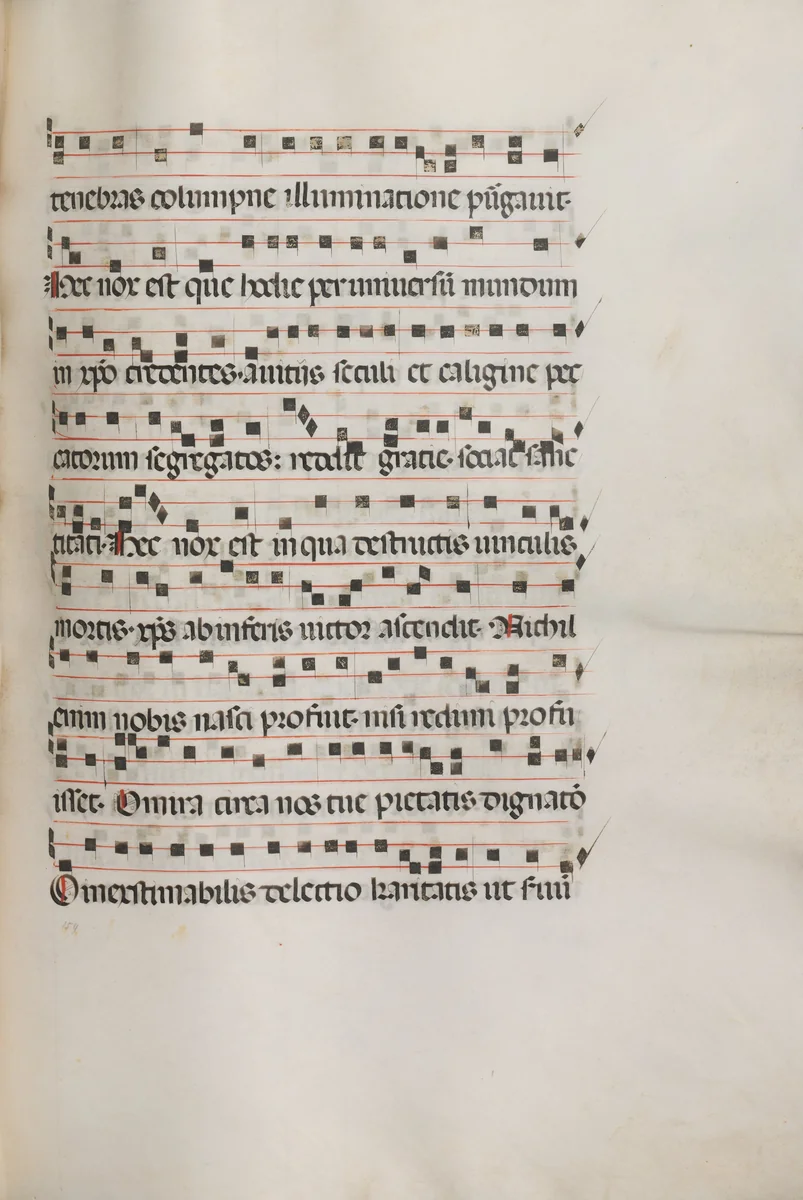 tenebras columpne illuminatione pu̅gauit.
Hec nox est que hodie per uniuersu̅ mundum
in xp̅o credentes. a uitiis seculi et caligine pec
catorum segregatos: reddit gratie. sociat sancti
titati. Hec nox est in qua destructis uinculis
mortis. xp̅s ab inferis uictor ascendit. Nichil
enim nobis nasci profuit. nisi redimi profu
isset. O mira circa nos tue pietatis dignatio̅
O inextimabilis delectio karitatis ut seruu̅